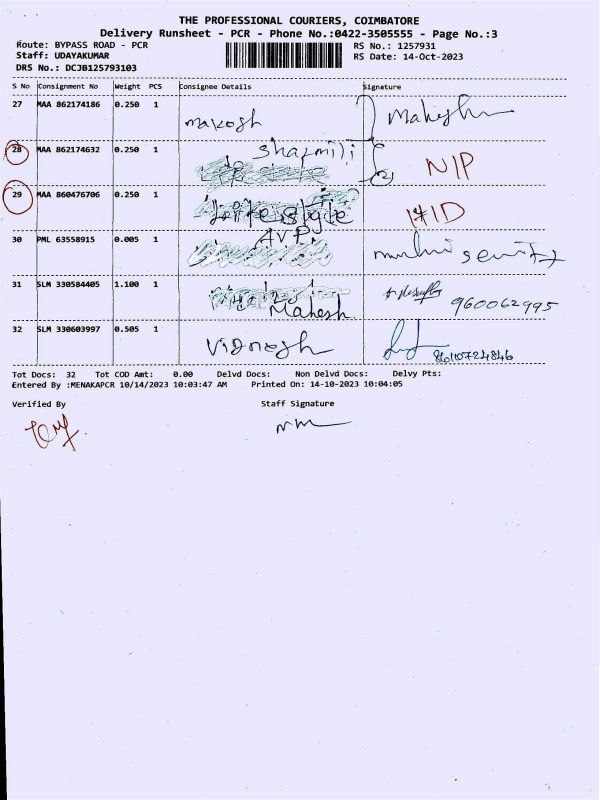 THE PROFESSIONAL COURIERS, COIMBATORE
Delivery Runsheet - PCR - Phone No.:0422-3505555 - Page No.:3
Route: BYPASS ROAD - PCR RS No.: 1257931
Staff: UDAYAKUMAR RS Date: 14-Oct-2023
DRS No.: DCJB125793103
S No Consignment No Weight PCS Consignee Details Signature
27 MAA 862174186 0.250 1 makosh Mahesh
28 MAA 862174632 0.250 1 sharmili NIP
29 MAA 860476706 0.250 1 Life style
30 PML 63558915 0.005 1 AVP.
31 SLM 330584405 1.100 1 Mahesh 960062995
32 SLM 330603997 0.505 1 Vignesh
Tot Docs: 32 Tot COD Amt: 0.00 Delvd Docs: Non Delvd Docs: Delvy Pts:
Entered By :MENAKAPCR 10/14/2023 10:03:47 AM Printed On: 14-10-2023 10:04:05
Verified By Staff Signature